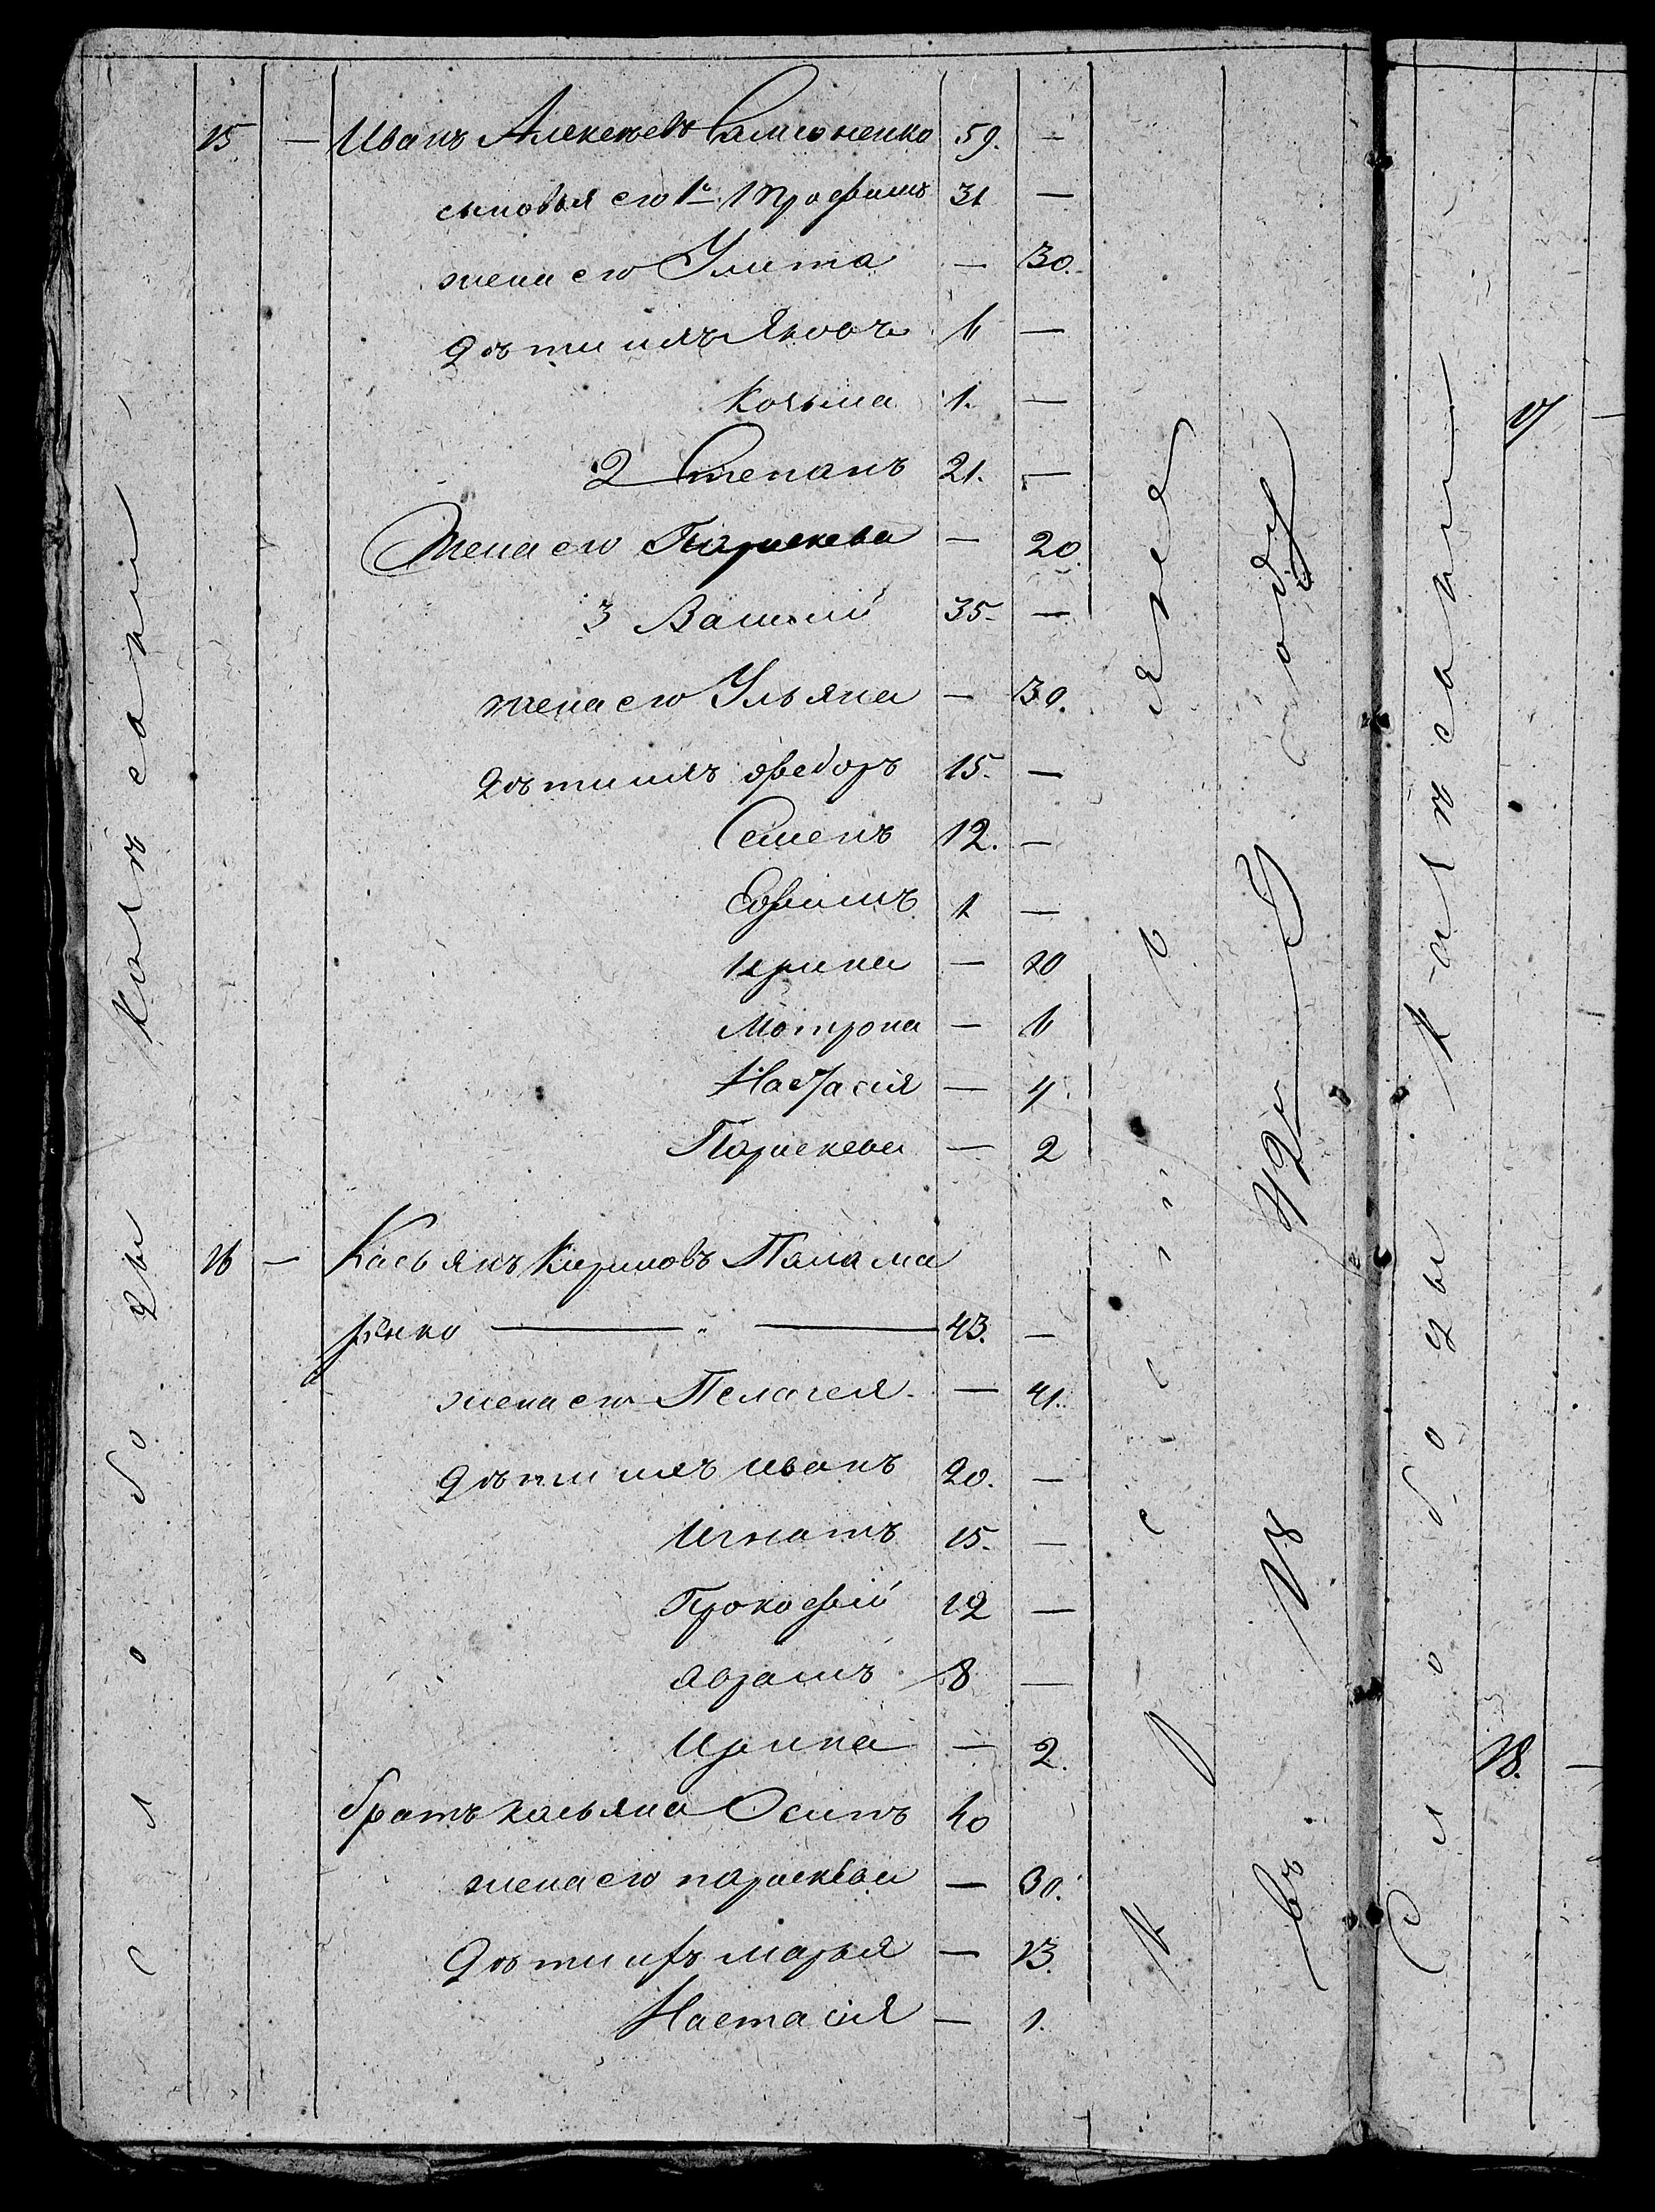 15 — Иванъ Алексѣевъ Самсоненко 59. —
сыновья его 1й Трофимъ 31 —
жена его Улита — 30.
дѣти ихъ Яковъ 6 —
Козьма 1. —
2 Степанъ 21. —
Жена его Параскева — 20.
3 Василій 35. —
жена его Ульяна — 30.
дѣти ихъ Ѳедоръ 15. —
Семенъ 12. —
Ефимъ 1 —
Ирина — 20
Мотрона — 6
Настасія — 4.
Параскева — 2
16 — Касьянъ Кириловъ Палама
рѣнко — " — 43. —
жена его Пелагея — 41.
дѣти ихъ Иванъ 20. —
Игнатъ 15. —
Прокофій 12 —
Абрамъ 8 —
Ирина — 2.
братъ Касьяна Осипъ 40
жена его Параскева — 30.
дѣти ихъ Марья — 13.
Настасія — 1.
Слободы
въ 18 42 году
Слободы
17 —
18. —